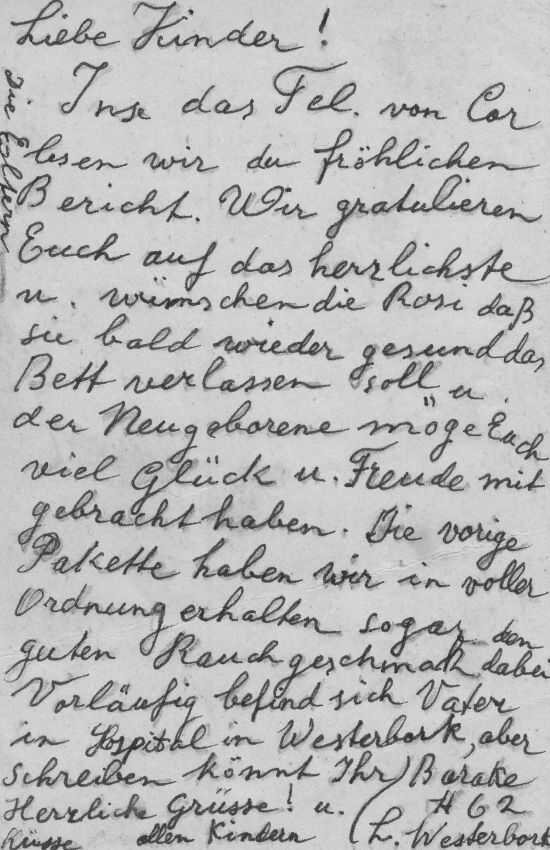 Liebe Kinder!
Ins das Tel. von Cor
lesen wir du fröhlichen
Bericht. Wir gratulieren
Euch auf das herzlichste
u. wünschen die Rosi daß
sie bald wieder gesund das
Bett verlassen soll u.
der Neugeborene möge Euch
viel Glück u. Freude mit
gebracht haben. Die vorige
Pakette haben wir in voller
Ordnung erhalten sogar den
guten Rauchgeschmack dabei
Vorläufig befind sich Vater
in Hospital in Westerbork, aber
schreiben könnt Ihr) Barake
Herzliche Grüsse! u. ( H 62
Küsse allen Kindern ( L. Westerbork
Die Eltern